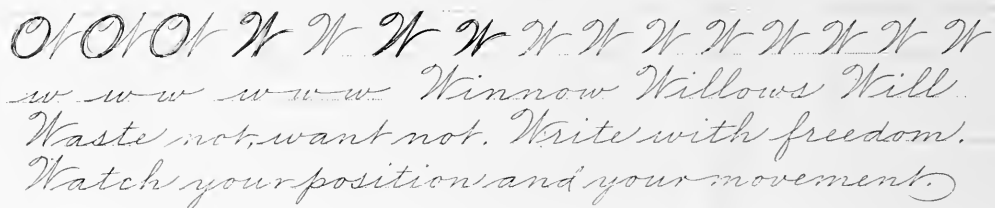 W W W W W W W W W W W W
w w w w w w Winnow Willows Will
Waste not, want not. Write with freedom.
Watch your position and your movement.